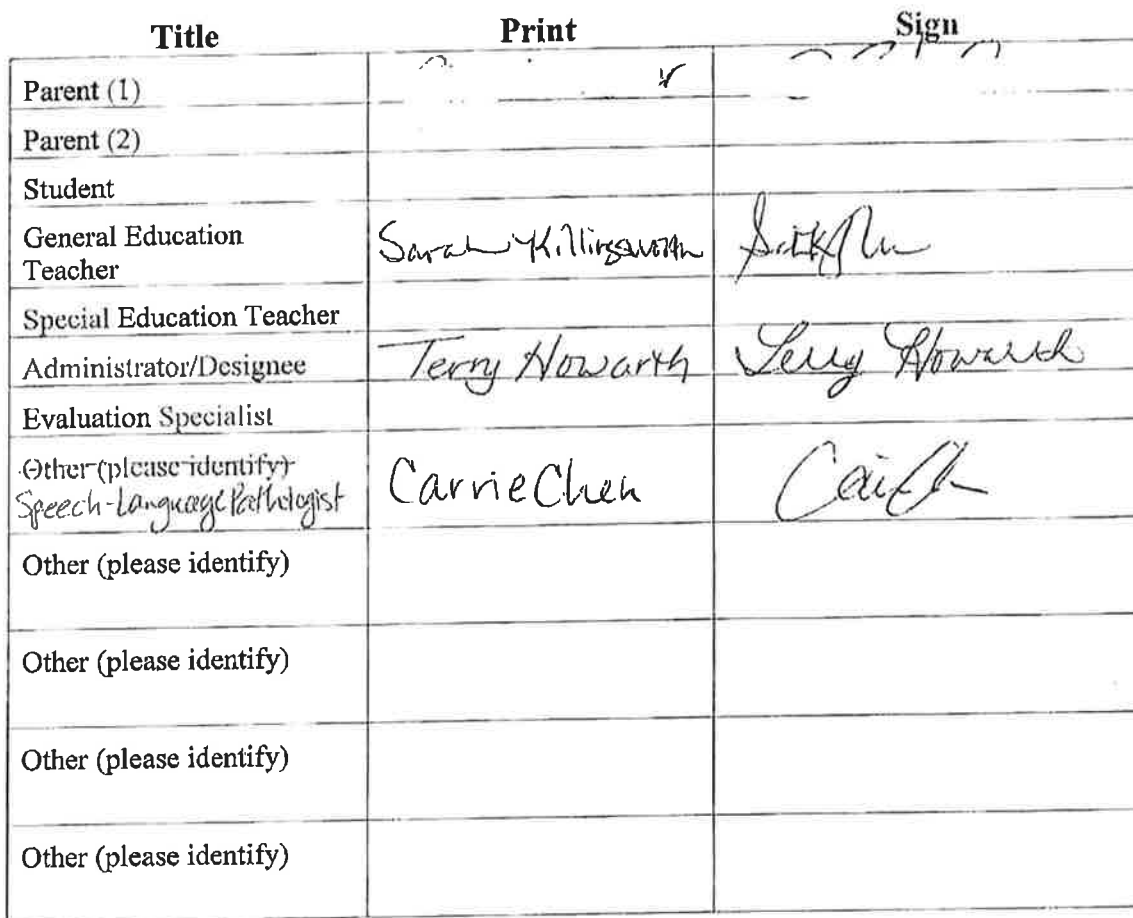 Title Print Sign
Parent (1)
Parent (2)
Student
General Education
Teacher Sarah Killingsworth
Special Education Teacher
Administrator/Designee Terry Howarth Terry Howarth
Evaluation Specialist
Other (please identify)
Speech-Language Pathologist Carrie Chen
Other (please identify)
Other (please identify)
Other (please identify)
Other (please identify)